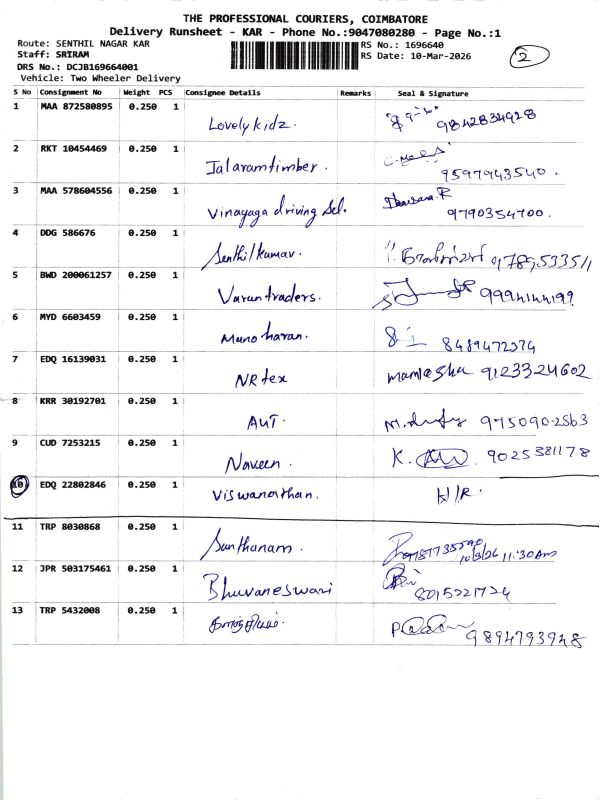 THE PROFESSIONAL COURIERS, COIMBATORE
Delivery Runsheet - KAR - Phone No.:9047080280 - Page No.:1
Route: SENTHIL NAGAR KAR
RS No.: 1696640
Staff: SRIRAM
RS Date: 10-Mar-2026
2
DRS No.: DCJB169664001
Vehicle: Two Wheeler Delivery
S No Consignment No Weight PCS Consignee Details Remarks Seal & Signature
1 MAA 872580895 0.250 1 Lovely kidz. 9842834928
2 RKT 10454469 0.250 1 Jalaramtimber. 9597943540.
3 MAA 578604556 0.250 1 Vinayaga driving Scl. 9790354700.
4 DDG 586676 0.250 1 Senthilkumar. 9789533511
5 BWD 200061257 0.250 1 Varuntraders.
6 MYD 6603459 0.250 1 Manoharan. 8489472374
7 EDQ 16139031 0.250 1 NR tex 9123324602
8 KRR 30192701 0.250 1 AUT. 9750902563
9 CUD 7253215 0.250 1 Naveen. K. 9025381178
10 EDQ 22802846 0.250 1 Viswanathan. H/R.
11 TRP 8030868 0.250 1 Santhanam. 10/3/26 11:30 Am
12 JPR 503175461 0.250 1 Bhuvaneswari 8015221724
13 TRP 5432008 0.250 1 9894793948